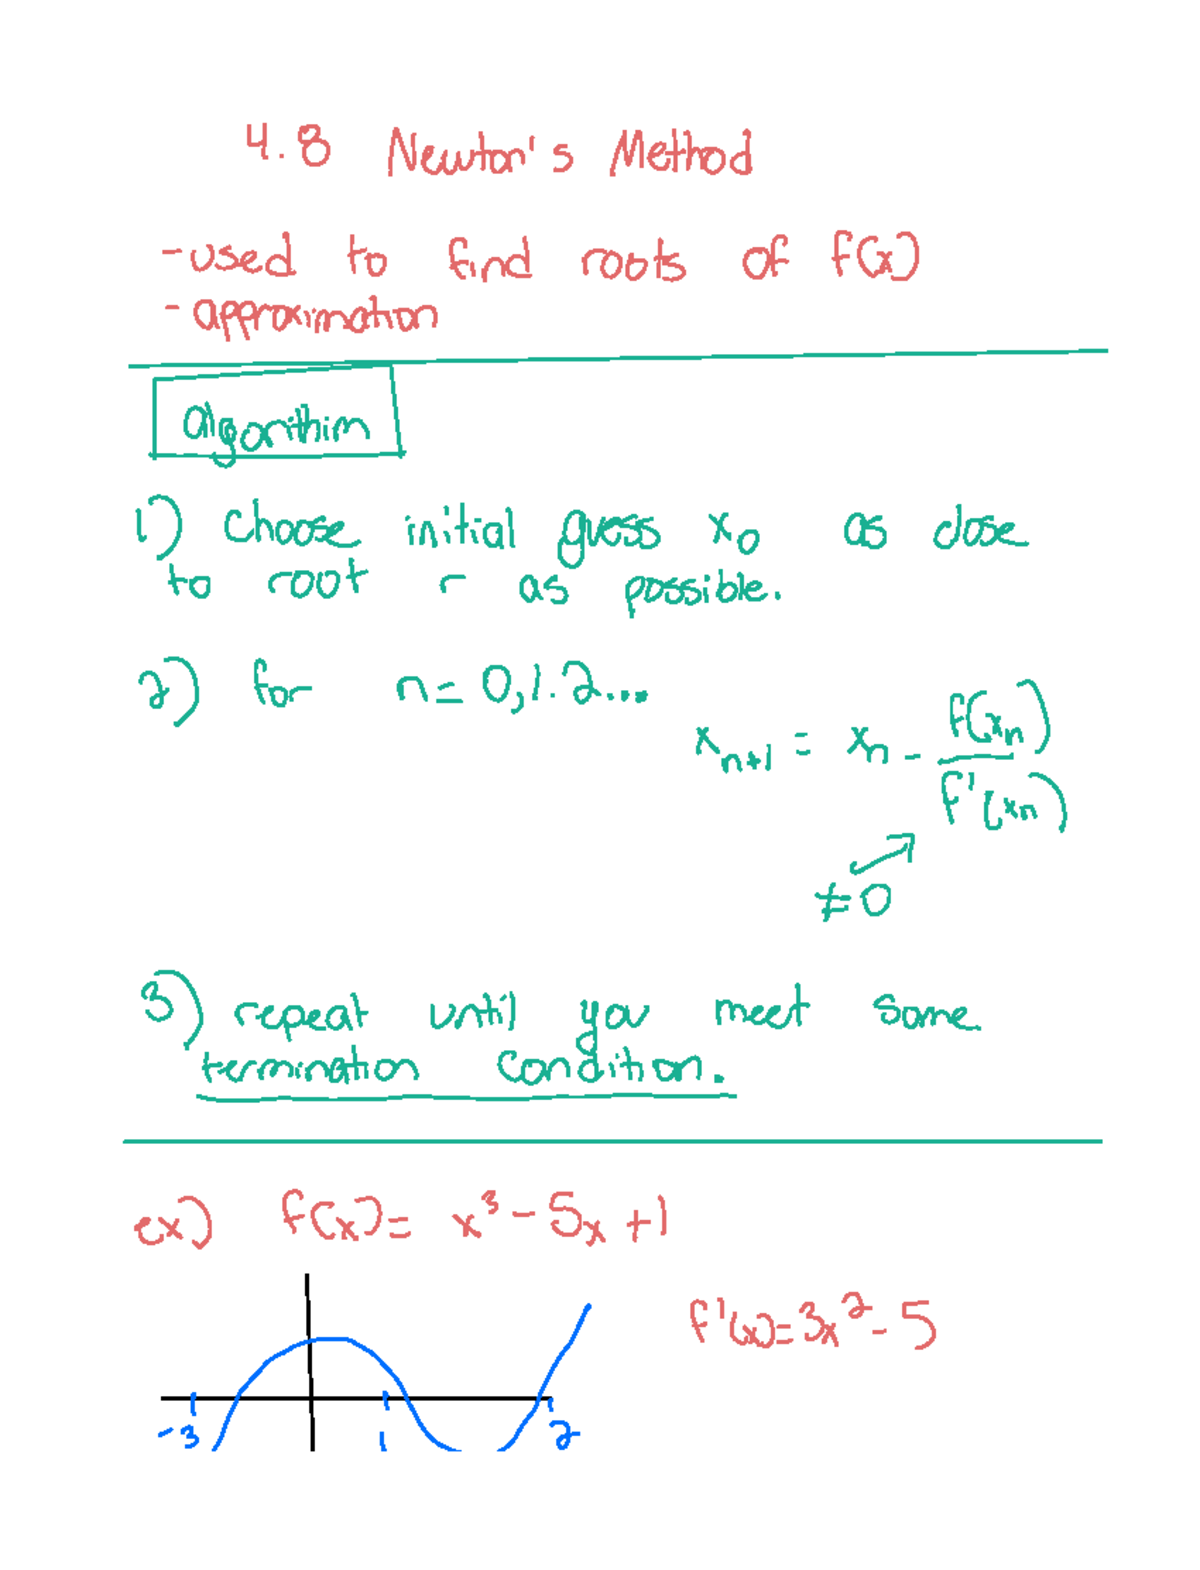 4.8 Newton's Method
-used to find roots of f(x)
- approximation
algorithim
1) choose initial guess x₀ as close
to root r as possible.
2) for n = 0,1.2...
xₙ₊₁ = xₙ - f(xₙ) / f'(xₙ)
≠0
3) repeat until you meet some
termination condition.
ex) f(x) = x³ - 5x + 1
f'(x) = 3x² - 5
-3 1 2